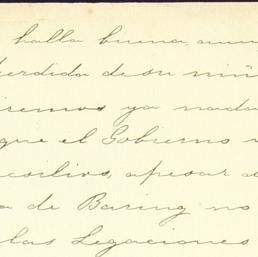 halla buena, aun
perdida de su niñ
iremos ya nada
que el Gobierno
ausilios, apesar d
a de Baring no
las Legaciones